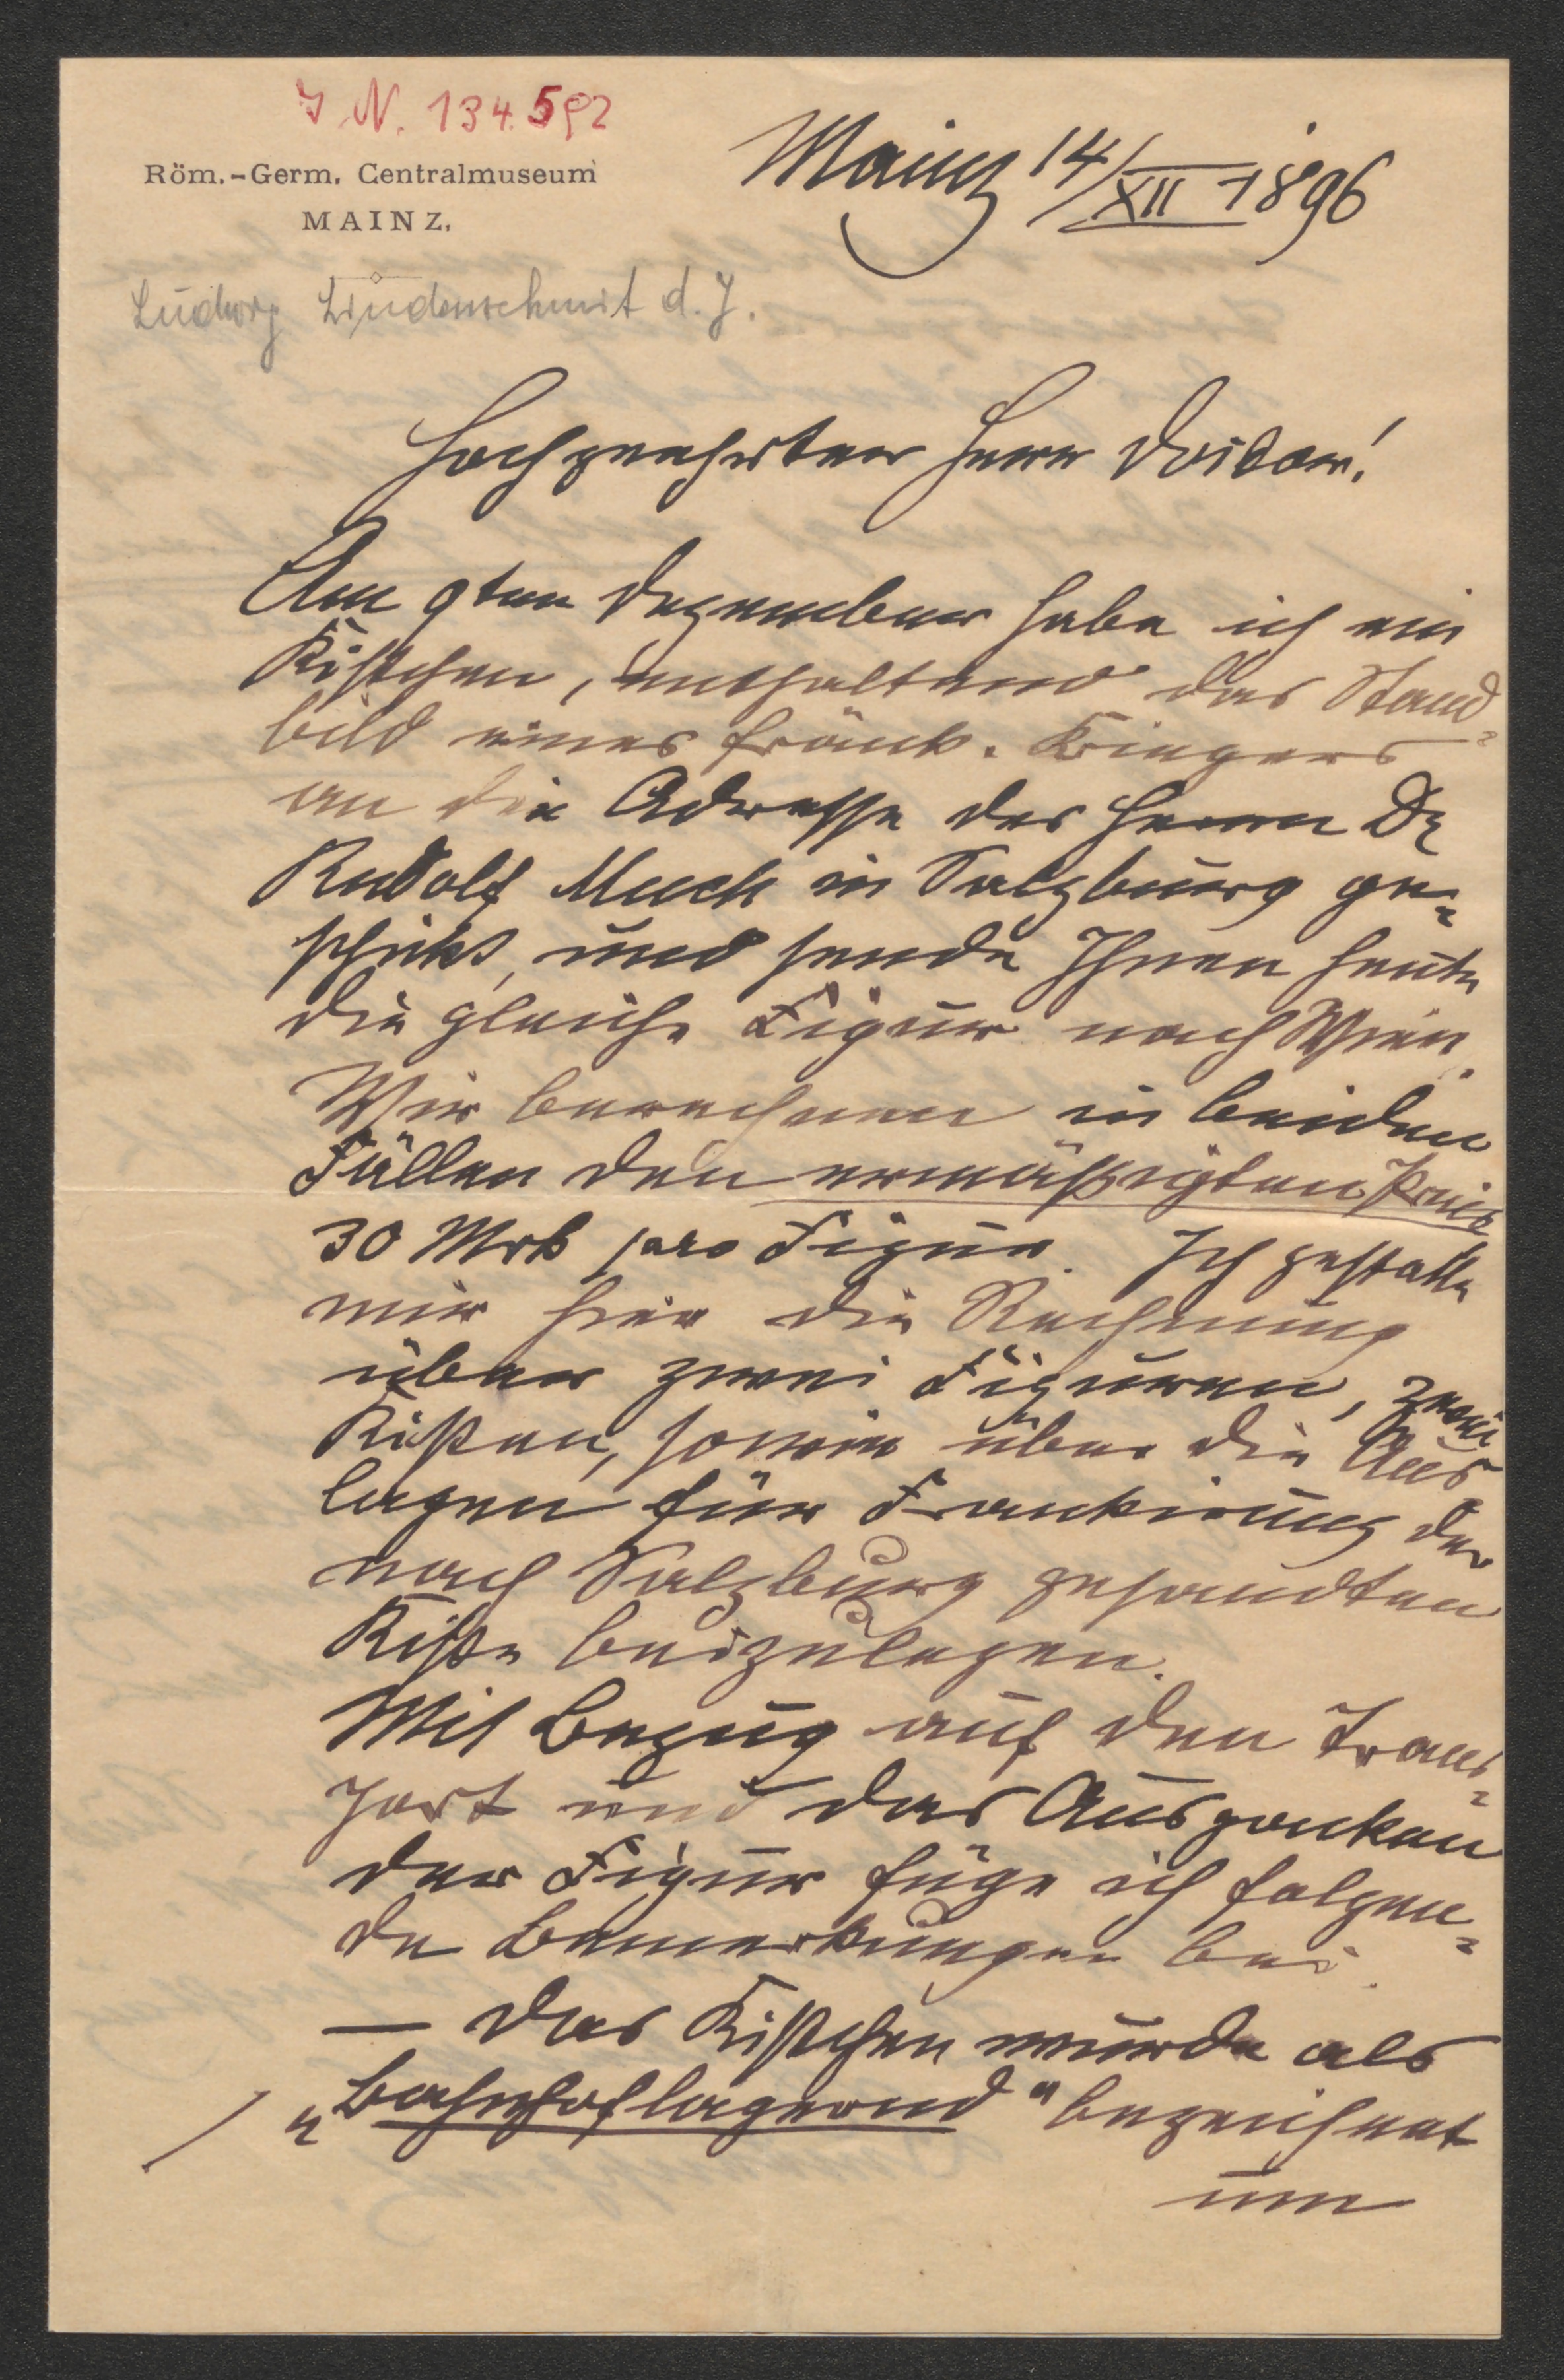 J. N. 134.592
Röm.-Germ. Centralmuseum
MAINZ.
Mainz 14/XII 1896
Ludwig Lindenschmit d. J.
Hochgeehrter Herr Doktor!
Am 9ten Dezember habe ich ein
Kistchen, enthaltend das Stand-
bild eines fränk. Kriegers
an die Adresse des Herrn Dr
Rudolf Much in Salzburg ge-
schickt, und sende Ihnen heute
die gleiche Figur nach Wien.
Wir berechnen in beiden
Fällen den ermäßigten Preis
30 Mrk pro Figur. Ich gestatte
mir hier die Rechnung
über zwei Figuren, zwei
Kisten, sowie über die Aus-
lagen für Frankirung der
nach Salzburg gesandten
Kiste beizulegen.
Mit Bezug auf den Trans-
port und das Auspacken
der Figur füge ich folgen-
de Bemerkungen bei.
— Das Kistchen wurde als
„Bahnhoflagernd" bezeichnet
um